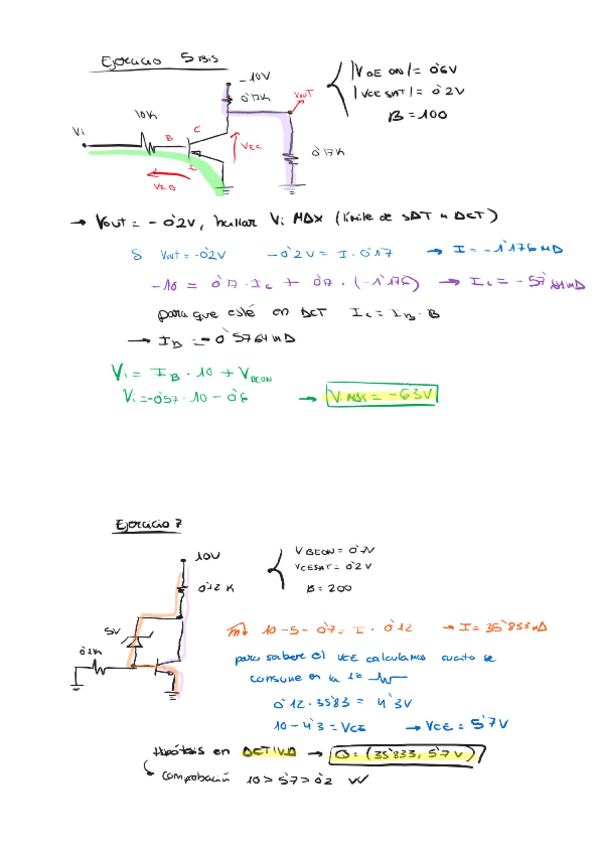 Ejercicio 5 Bis
-10V
0'17K
Vout
|VBE ON| = 0'6V
|VCE SAT| = 0'2V
B = 100
10K
Vi
B
C
VEC
VEB
0'17K
→ Vout = -0'2V, hallar Vi MAX (límite de SAT a ACT)
Si Vout = -0'2V   -0'2V = I · 0'17   → I = -1'176 mA
-10 = 0'17 · Ic + 0'17 · (-1'176)   → Ic = -57'64 mA
para que esté en ACT   Ic = IB · B
→ IB = -0'5764 mA
Vi = IB · 10 + VBEON
Vi = -0'57 · 10 - 0'6   → Vi MAX = -6'3V
Ejercicio 7
10V
0'12 K
VBEON = 0'7V
VCESAT = 0'2V
B = 200
5V
0'1K
10 - 5 - 0'7 = I · 0'12   → I = 35'833 mA
para saber el VCE calculamos cuanto se
consume en la 1ª
0'12 · 35'83 = 4'3V
10 - 4'3 = VCE   → VCE = 5'7V
Hipótesis en ACTIVA → Q = (35'833, 5'7V)
Comprobación 10 > 5'7 > 0'2